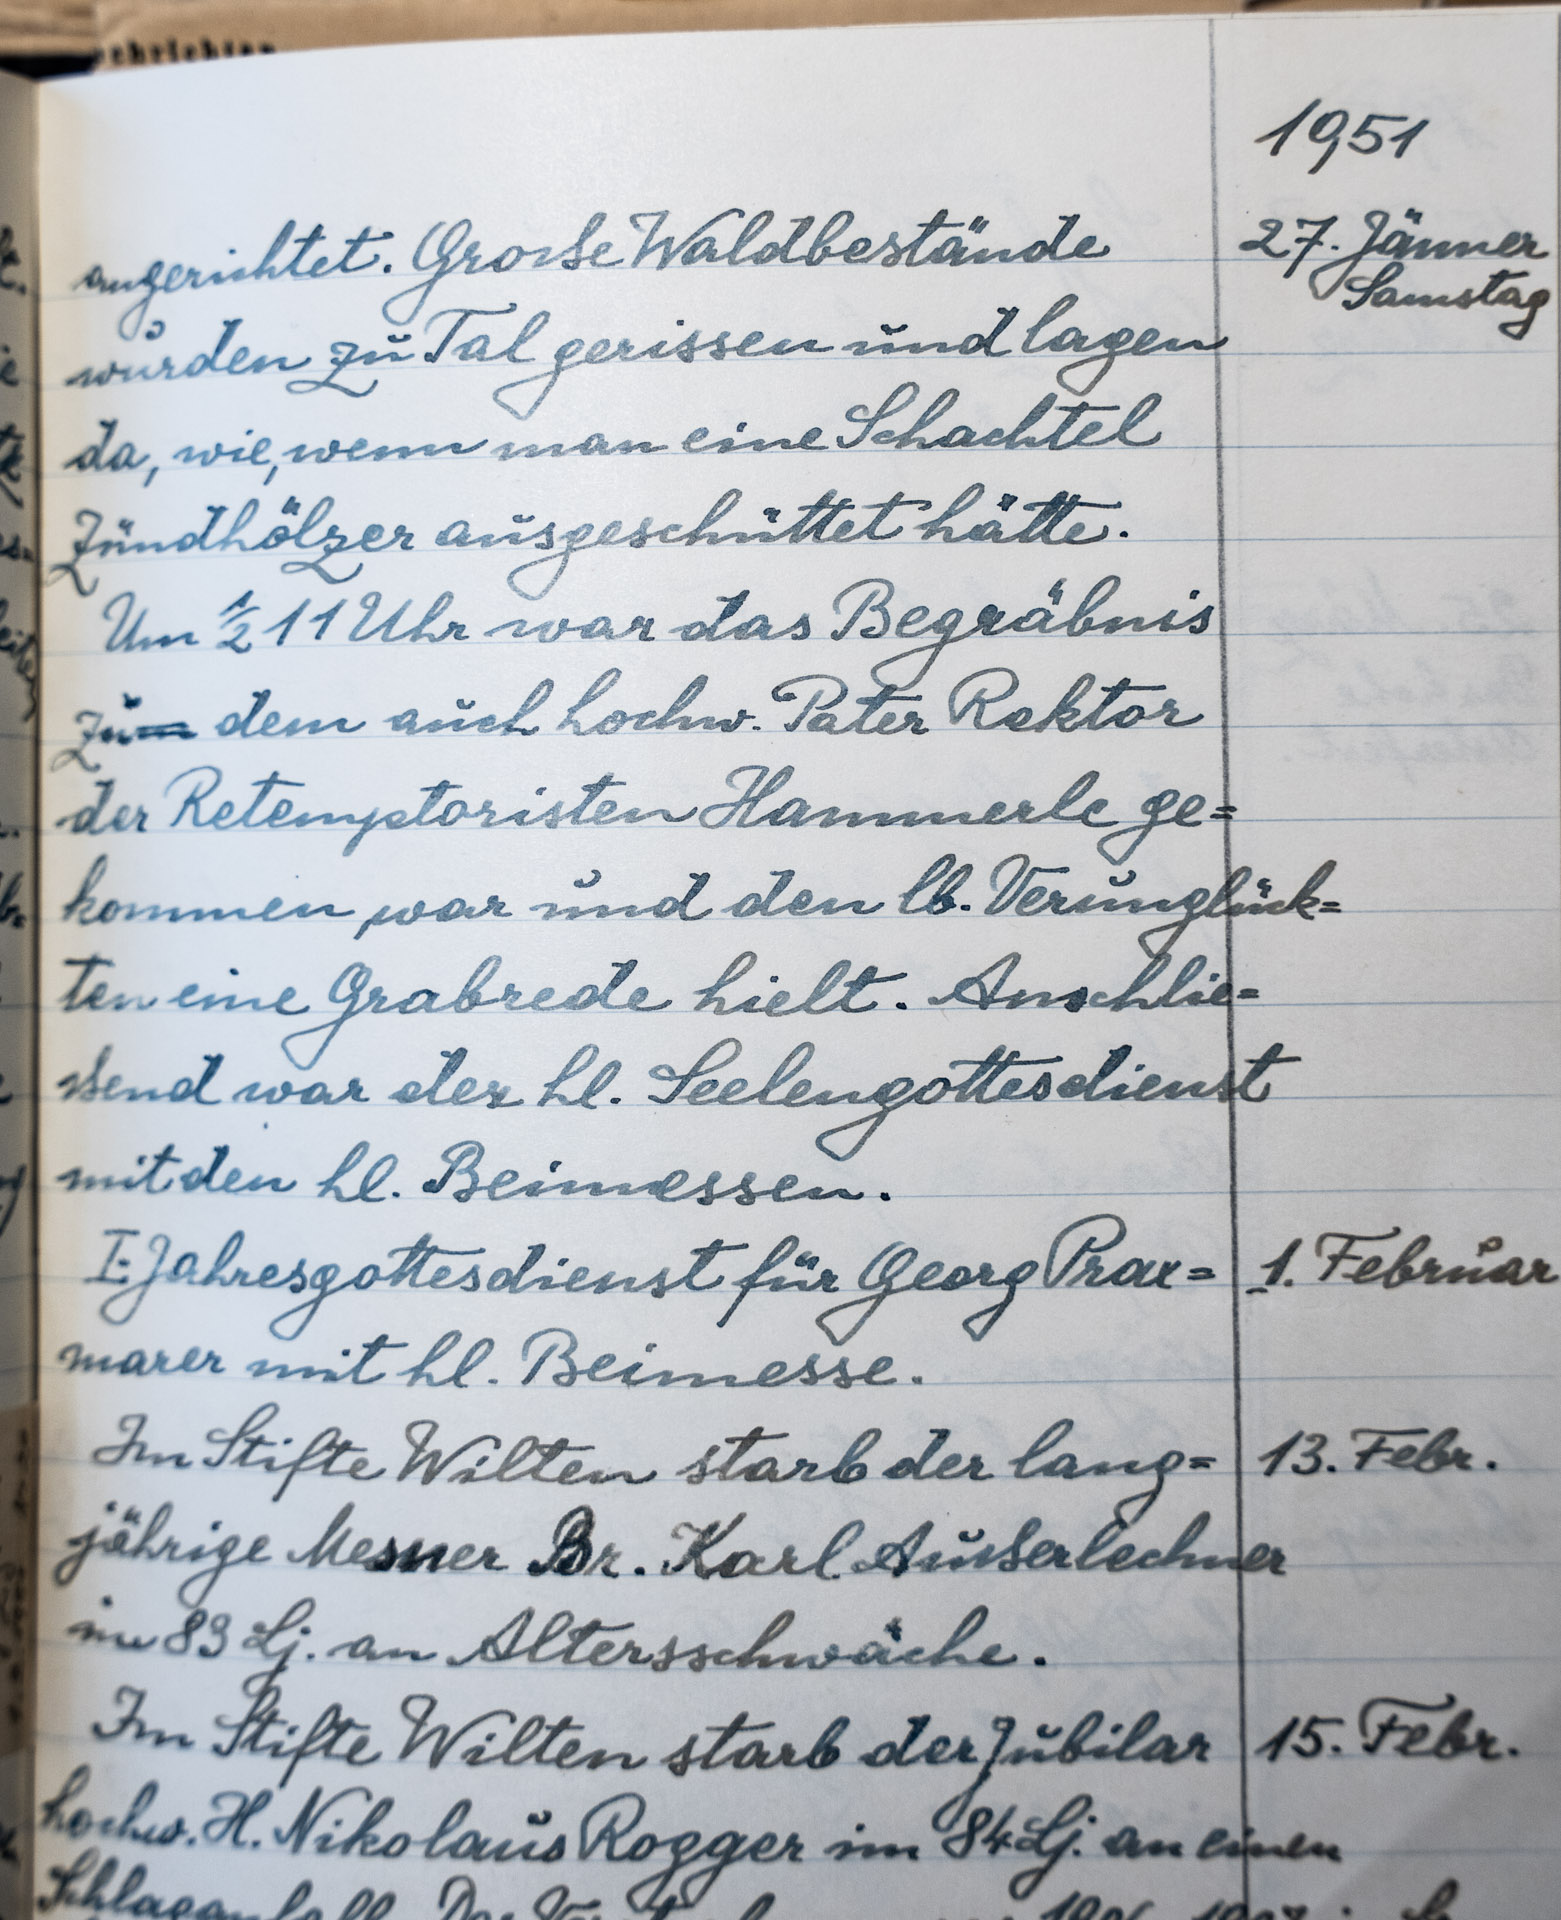 1951
27. Jänner
Samstag
angerichtet. Große Waldbestände
wurden zu Tal gerissen und lagen
da, wie, wenn man eine Schachtel
Zündhölzer ausgeschüttet hätte.
Um ½ 11 Uhr war das Begräbnis
zu dem auch hochw. Pater Rektor
der Retemptoristen Hammerle ge=
kommen war und den lb. Verunglück=
ten eine Grabrede hielt. Anschlie=
ßend war der hl. Seelengottesdienst
mit den hl. Beimessen.
I. Jahresgottesdienst für Georg Prax= 1. Februar
marer mit hl. Beimesse.
Im Stifte Wilten starb der lang= 13. Febr.
jährige Mesner Br. Karl Außerlechner
im 83 Lj. an Altersschwäche.
Im Stifte Wilten starb der Jubilar 15. Febr.
hochw. H. Nikolaus Rogger im 84 Lj. an einen
Schlaganfall. Der